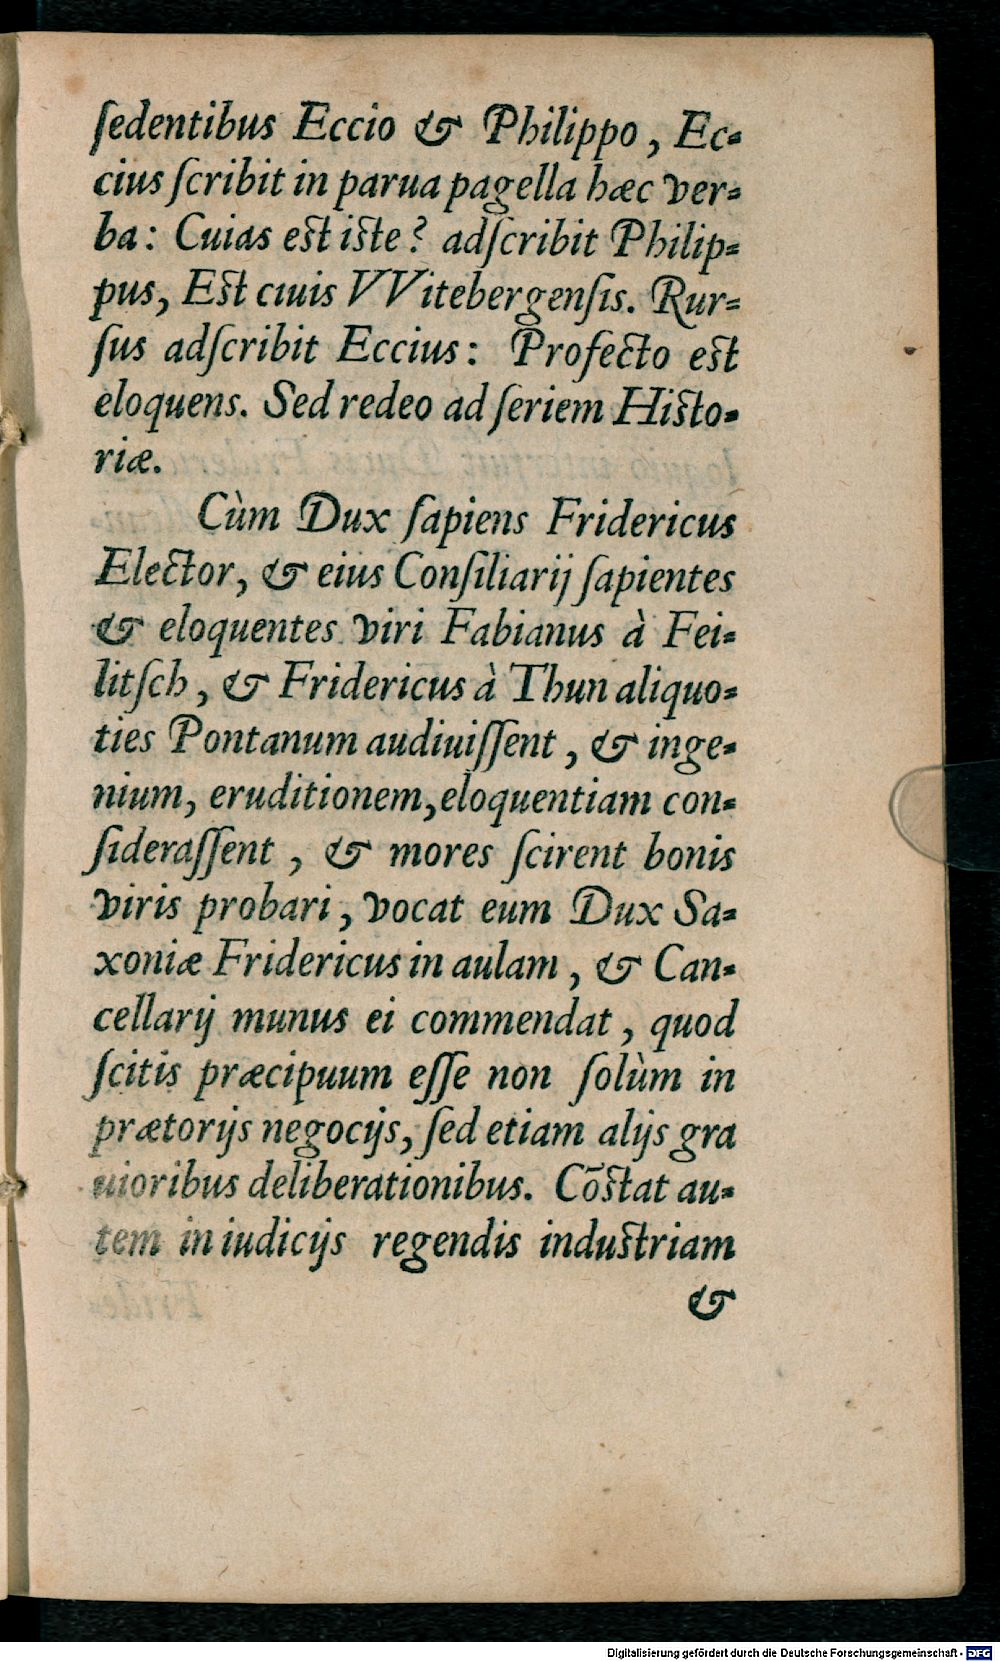 ſedentibus Eccio & Philippo, Ec-
cius ſcribit in parua pagella hæc ver-
ba: Cuias est iste? adſcribit Philip-
pus, Est ciuis VVitebergenſis. Rur-
ſus adſcribit Eccius: Profecto est
eloquens. Sed redeo ad ſeriem Histo-
riæ.
Cùm Dux ſapiens Fridericus
Elector, & eius Conſiliarij ſapientes
& eloquentes viri Fabianus à Fei-
litſch, & Fridericus à Thun aliquo-
ties Pontanum audiuiſſent, & inge-
nium, eruditionem, eloquentiam con-
ſideraſſent, & mores ſcirent bonis
viris probari, vocat eum Dux Sa-
xoniæ Fridericus in aulam, & Can-
cellarij munus ei commendat, quod
ſcitis præcipuum eſſe non ſolùm in
prætorijs negocijs, ſed etiam alijs gra
uioribus deliberationibus. Cõstat au-
tem in iudicijs regendis industriam
&
Digitalisierung gefördert durch die Deutsche Forschungsgemeinschaft - DFG